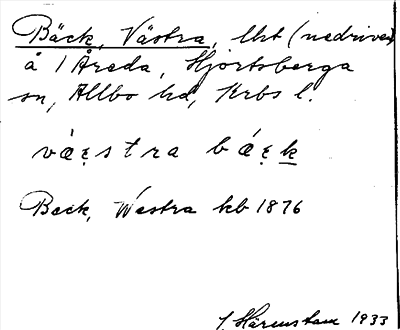 Bäck, Västra, lht (nedriven)
å 1 Åreda, Hjortsberga
sn, Allbo hd, Krbs l.
væ̨stra bæ̨k
Beck, Westra kb 1876
J. Härenstam 1933